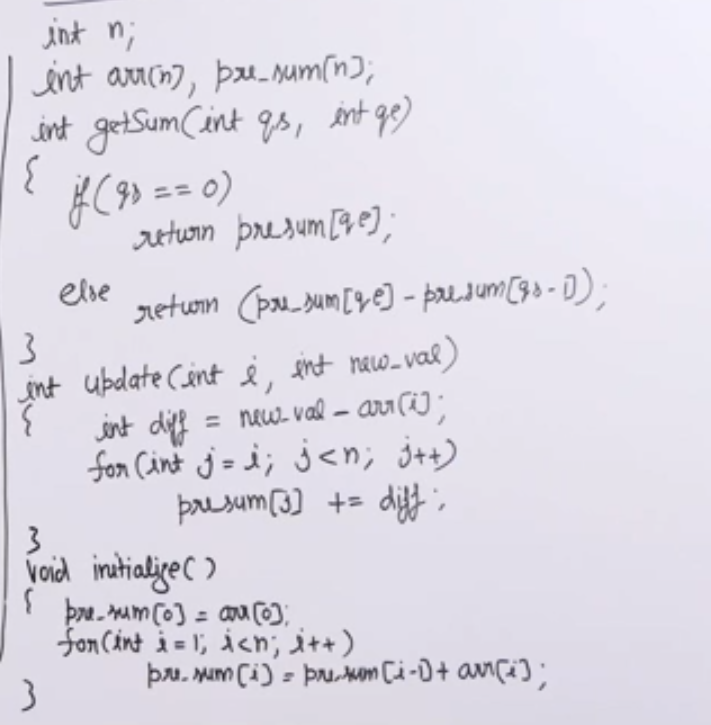 int n;
int arr[n], pre_sum[n];
int getSum(int qs, int qe)
{
if(qs == 0)
return presum[qe];
else return (pre_sum[qe] - presum[qs-1]);
}
int update(int i, int new_val)
{ int diff = new_val - arr[i];
for(int j = i; j < n; j++)
presum[j] += diff;
}
void initialize()
{ pre_sum[0] = arr[0];
for(int i = 1; i<n; i++)
pre_sum[i] = pre_sum[i-1] + arr[i];
}